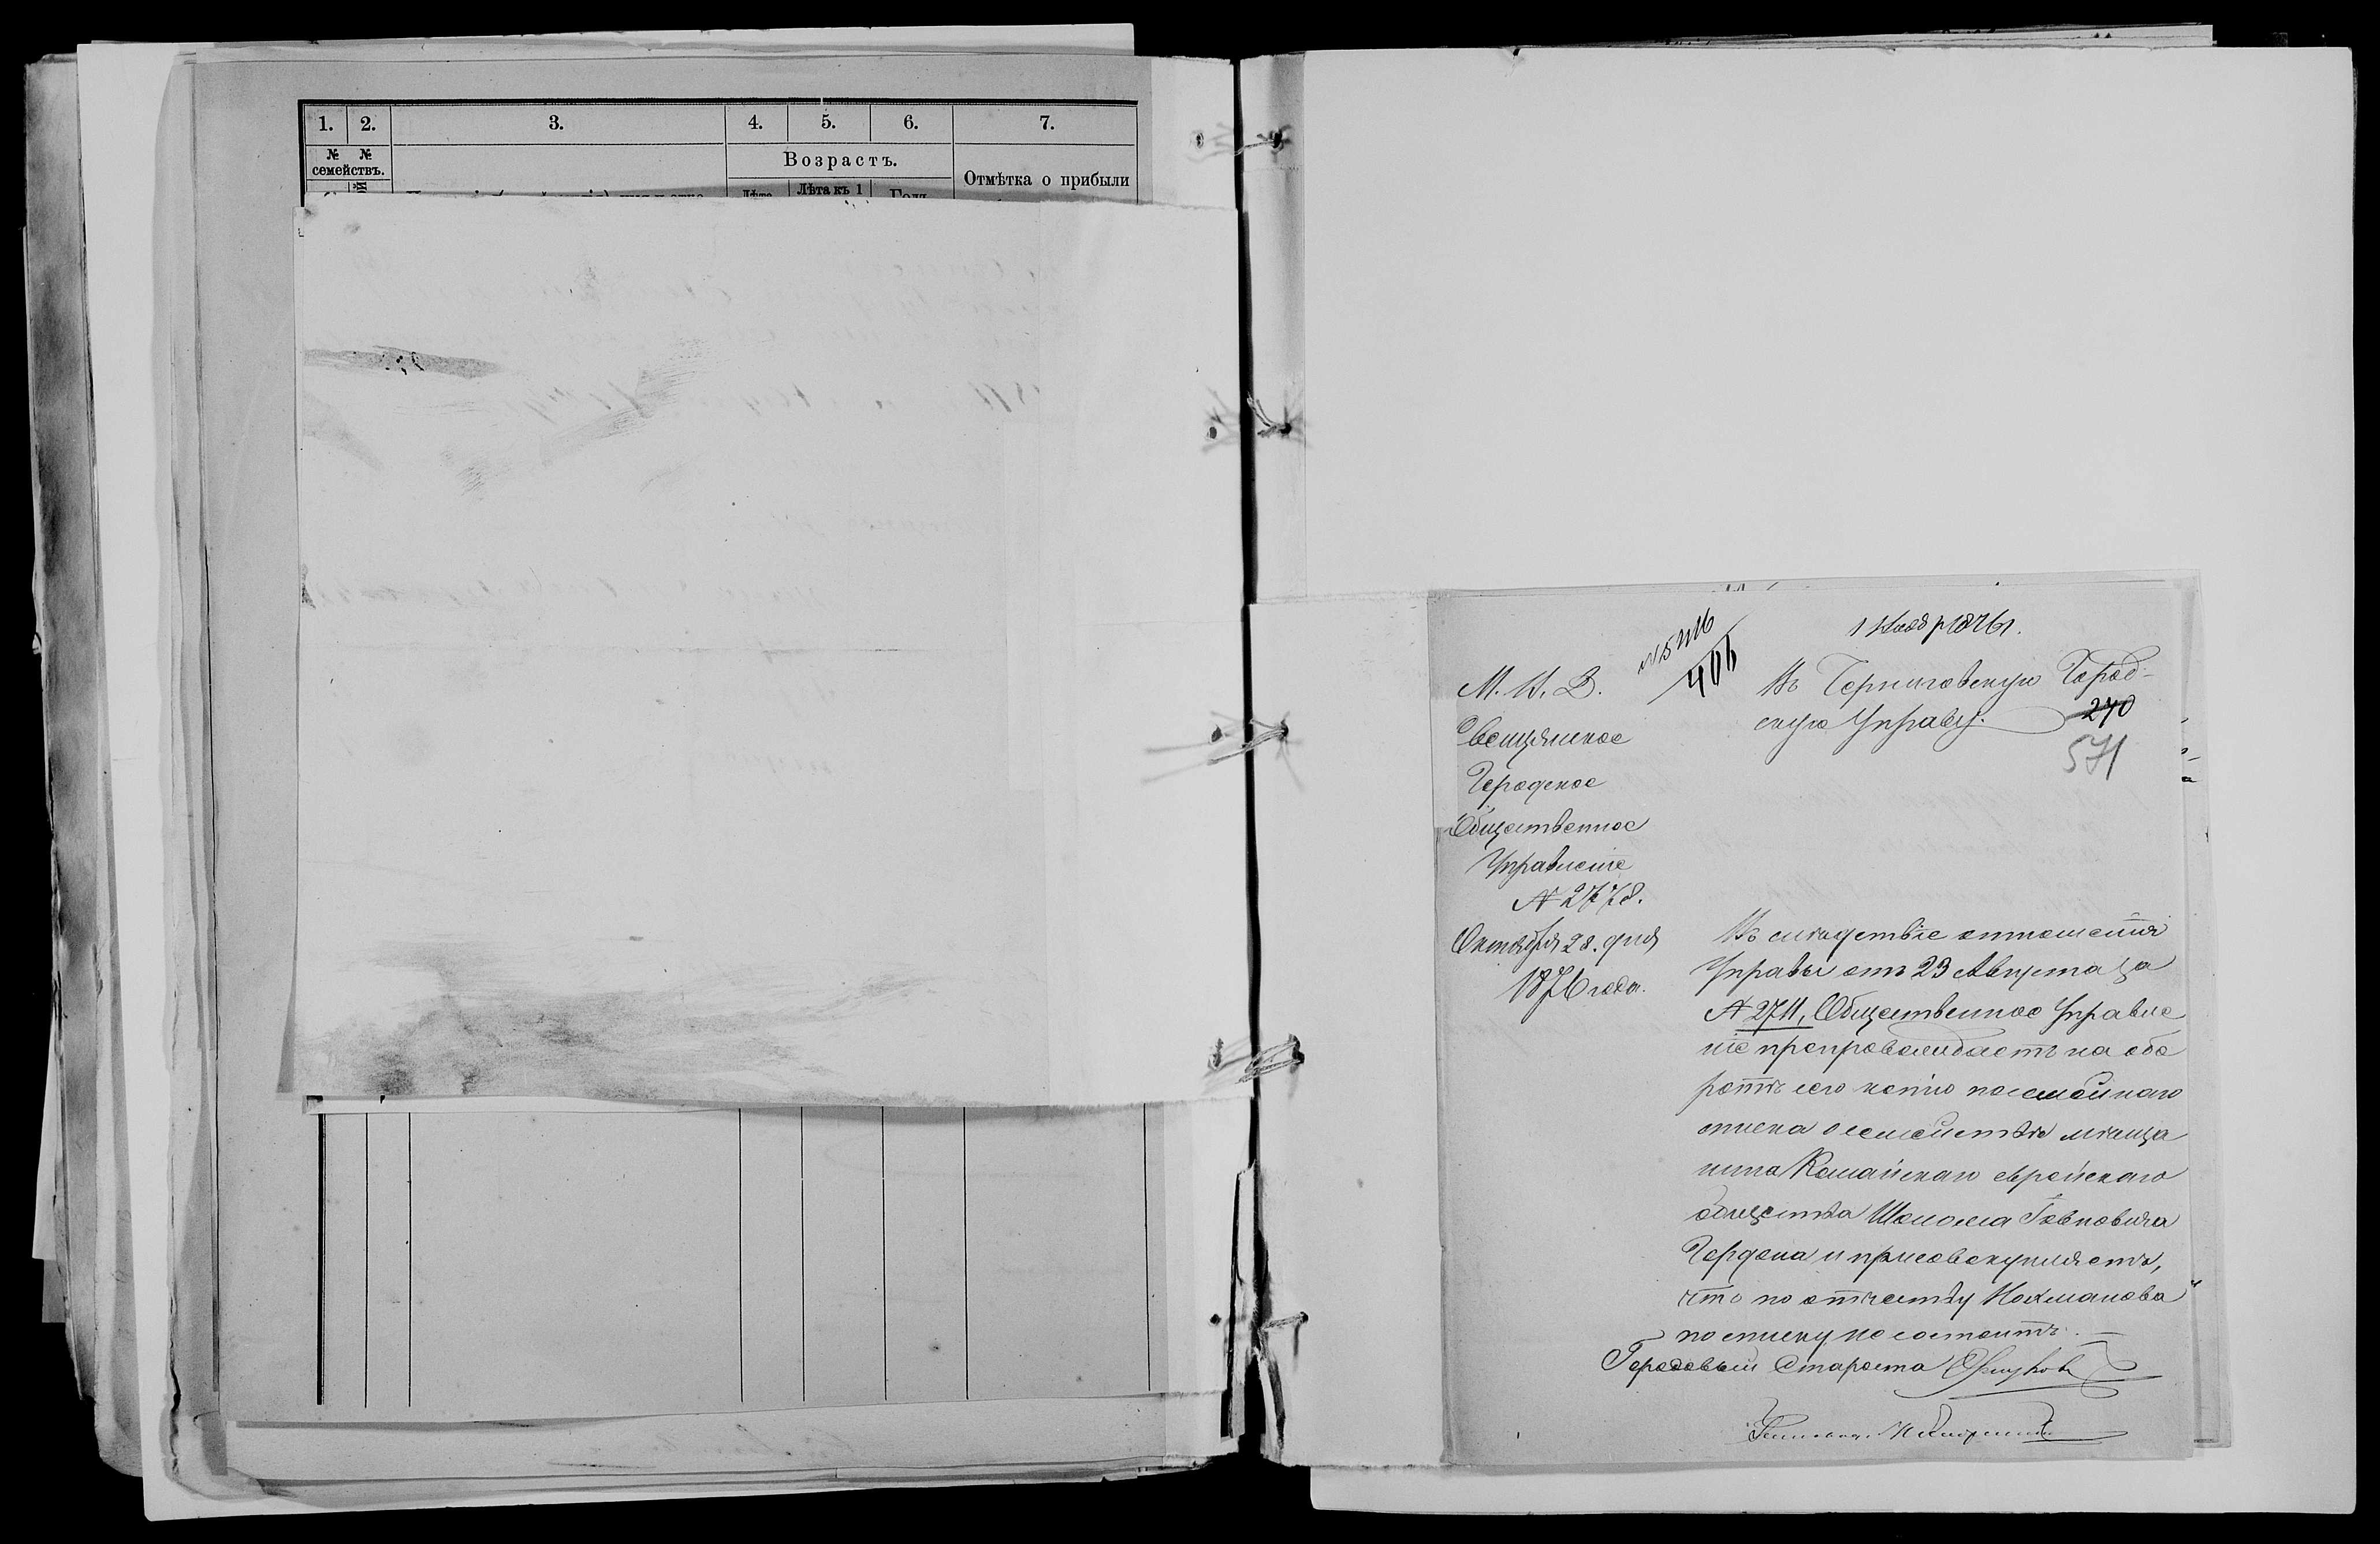 1. 2. 3. 4. 5. 6. 7.
№ № семействъ.
Возрастъ.
Отмѣтка о прибыли
Лѣта
Лѣта къ 1
Годъ
1 Ноября 1876 г.
406
М. В. Д.
Свенцянское
Городское
Общественное
Управленіе
№ 2778.
Октября 28. дня
1876 года.
Въ Черниговскую Город-
скую Управу.
270
571
Въ слѣдствіе отношенія
Управы отъ 23 Августа за
№ 2711, Общественное Управле
ніе препровождаетъ на обо
ротѣ сего копію посемейнаго
списка о семействѣ мѣща
нина Комайскаго еврейскаго
общества Шолома Говновича
Гордона и присовокупляетъ,
что по отчеству Нохманова
по списку не состоитъ.
Городовый Староста